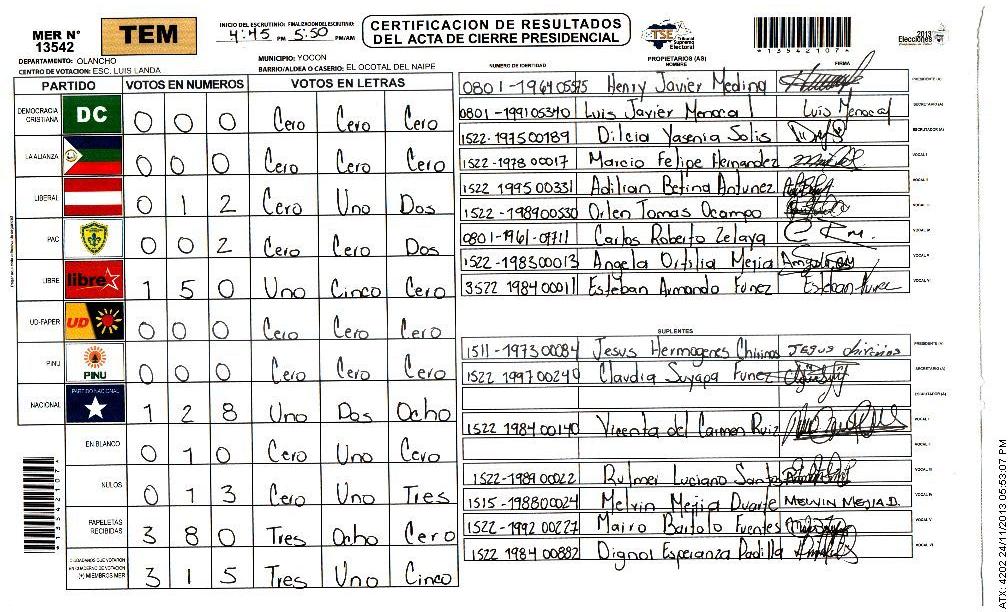 MER N° 13542
TEM
INICIO DEL ESCRUTINIO: 4:45 PM FINALIZACION DEL ESCRUTINIO: 5:50 PM/AM
CERTIFICACION DE RESULTADOS
DEL ACTA DE CIERRE PRESIDENCIAL
TSE Tribunal Supremo Electoral
*135421074*
2013 Elecciones
DEPARTAMENTO: OLANCHO
MUNICIPIO: YOCON
CENTRO DE VOTACION: ESC. LUIS LANDA
BARRIO/ALDEA O CASERIO: EL OCOTAL DEL NAIPE
PARTIDO VOTOS EN NUMEROS VOTOS EN LETRAS
DEMOCRACIA CRISTIANA DC 0 0 0 Cero Cero Cero
LA ALIANZA 0 0 0 Cero Cero Cero
LIBERAL 0 1 2 Cero Uno Dos
PAC 0 0 2 Cero Cero Dos
LIBRE libre 1 5 0 Uno Cinco Cero
UD-FAPER UD 0 0 0 Cero Cero Cero
PINU PINU 0 0 0 Cero Cero Cero
NACIONAL PARTIDO NACIONAL 1 2 8 Uno Dos Ocho
EN BLANCO 0 1 0 Cero Uno Cero
NULOS 0 1 3 Cero Uno Tres
PAPELETAS RECIBIDAS 3 8 0 Tres Ocho Cero
CIUDADANOS QUE VOTARON EN CUADERNO DE VOTACION (+) MIEMBROS MER 3 1 5 Tres Uno Cinco
*135421074*
NUMERO DE IDENTIDAD PROPIETARIOS (AS) NOMBRE FIRMA
0801-196405575 Henry Javier Medina PRESIDENTE (A)
0801-199105340 Luis Javier Menocal Luis Menocal SECRETARIO(A)
1522-197500189 Dilcia Yasenia Solis ESCRUTADOR (A)
1522-1978 00017 Marcio Felipe Hernandez VOCAL I
1522 1995 00331 Adilian Betina Antunez VOCAL II
1522-198900530 Orlen Tomas Ocampo VOCAL III
0801-1961-07711 Carlos Roberto Zelaya VOCAL IV
1522-198300013 Angela Ortilia Mejia VOCAL V
3522 1984 00011 Esteban Armando Funez Esteban Funez VOCAL VI
SUPLENTES
1511-1973 00084 Jesus Hermogenes Chirinos JESUS chirinos PRESIDENTE (A)
1522 1997 00240 Claudia Suyapa Funez SECRETARIO(A)
ESCRUTADOR (A)
1522 1984 00140 Vicenta del Carmen Ruiz VOCAL I
VOCAL II
1522-1989 00022 Rulmer Luciano Santos VOCAL III
1515-198800024 Melvin Mejia Duarte MELVIN MEJIA D. VOCAL IV
1522-1992 00227 Mairo Bartolo Fuentes VOCAL V
1522 1984 00882 Digna Esperanza Padilla VOCAL VI
ATX: 4202 24/11/2013 05:53:07 PM